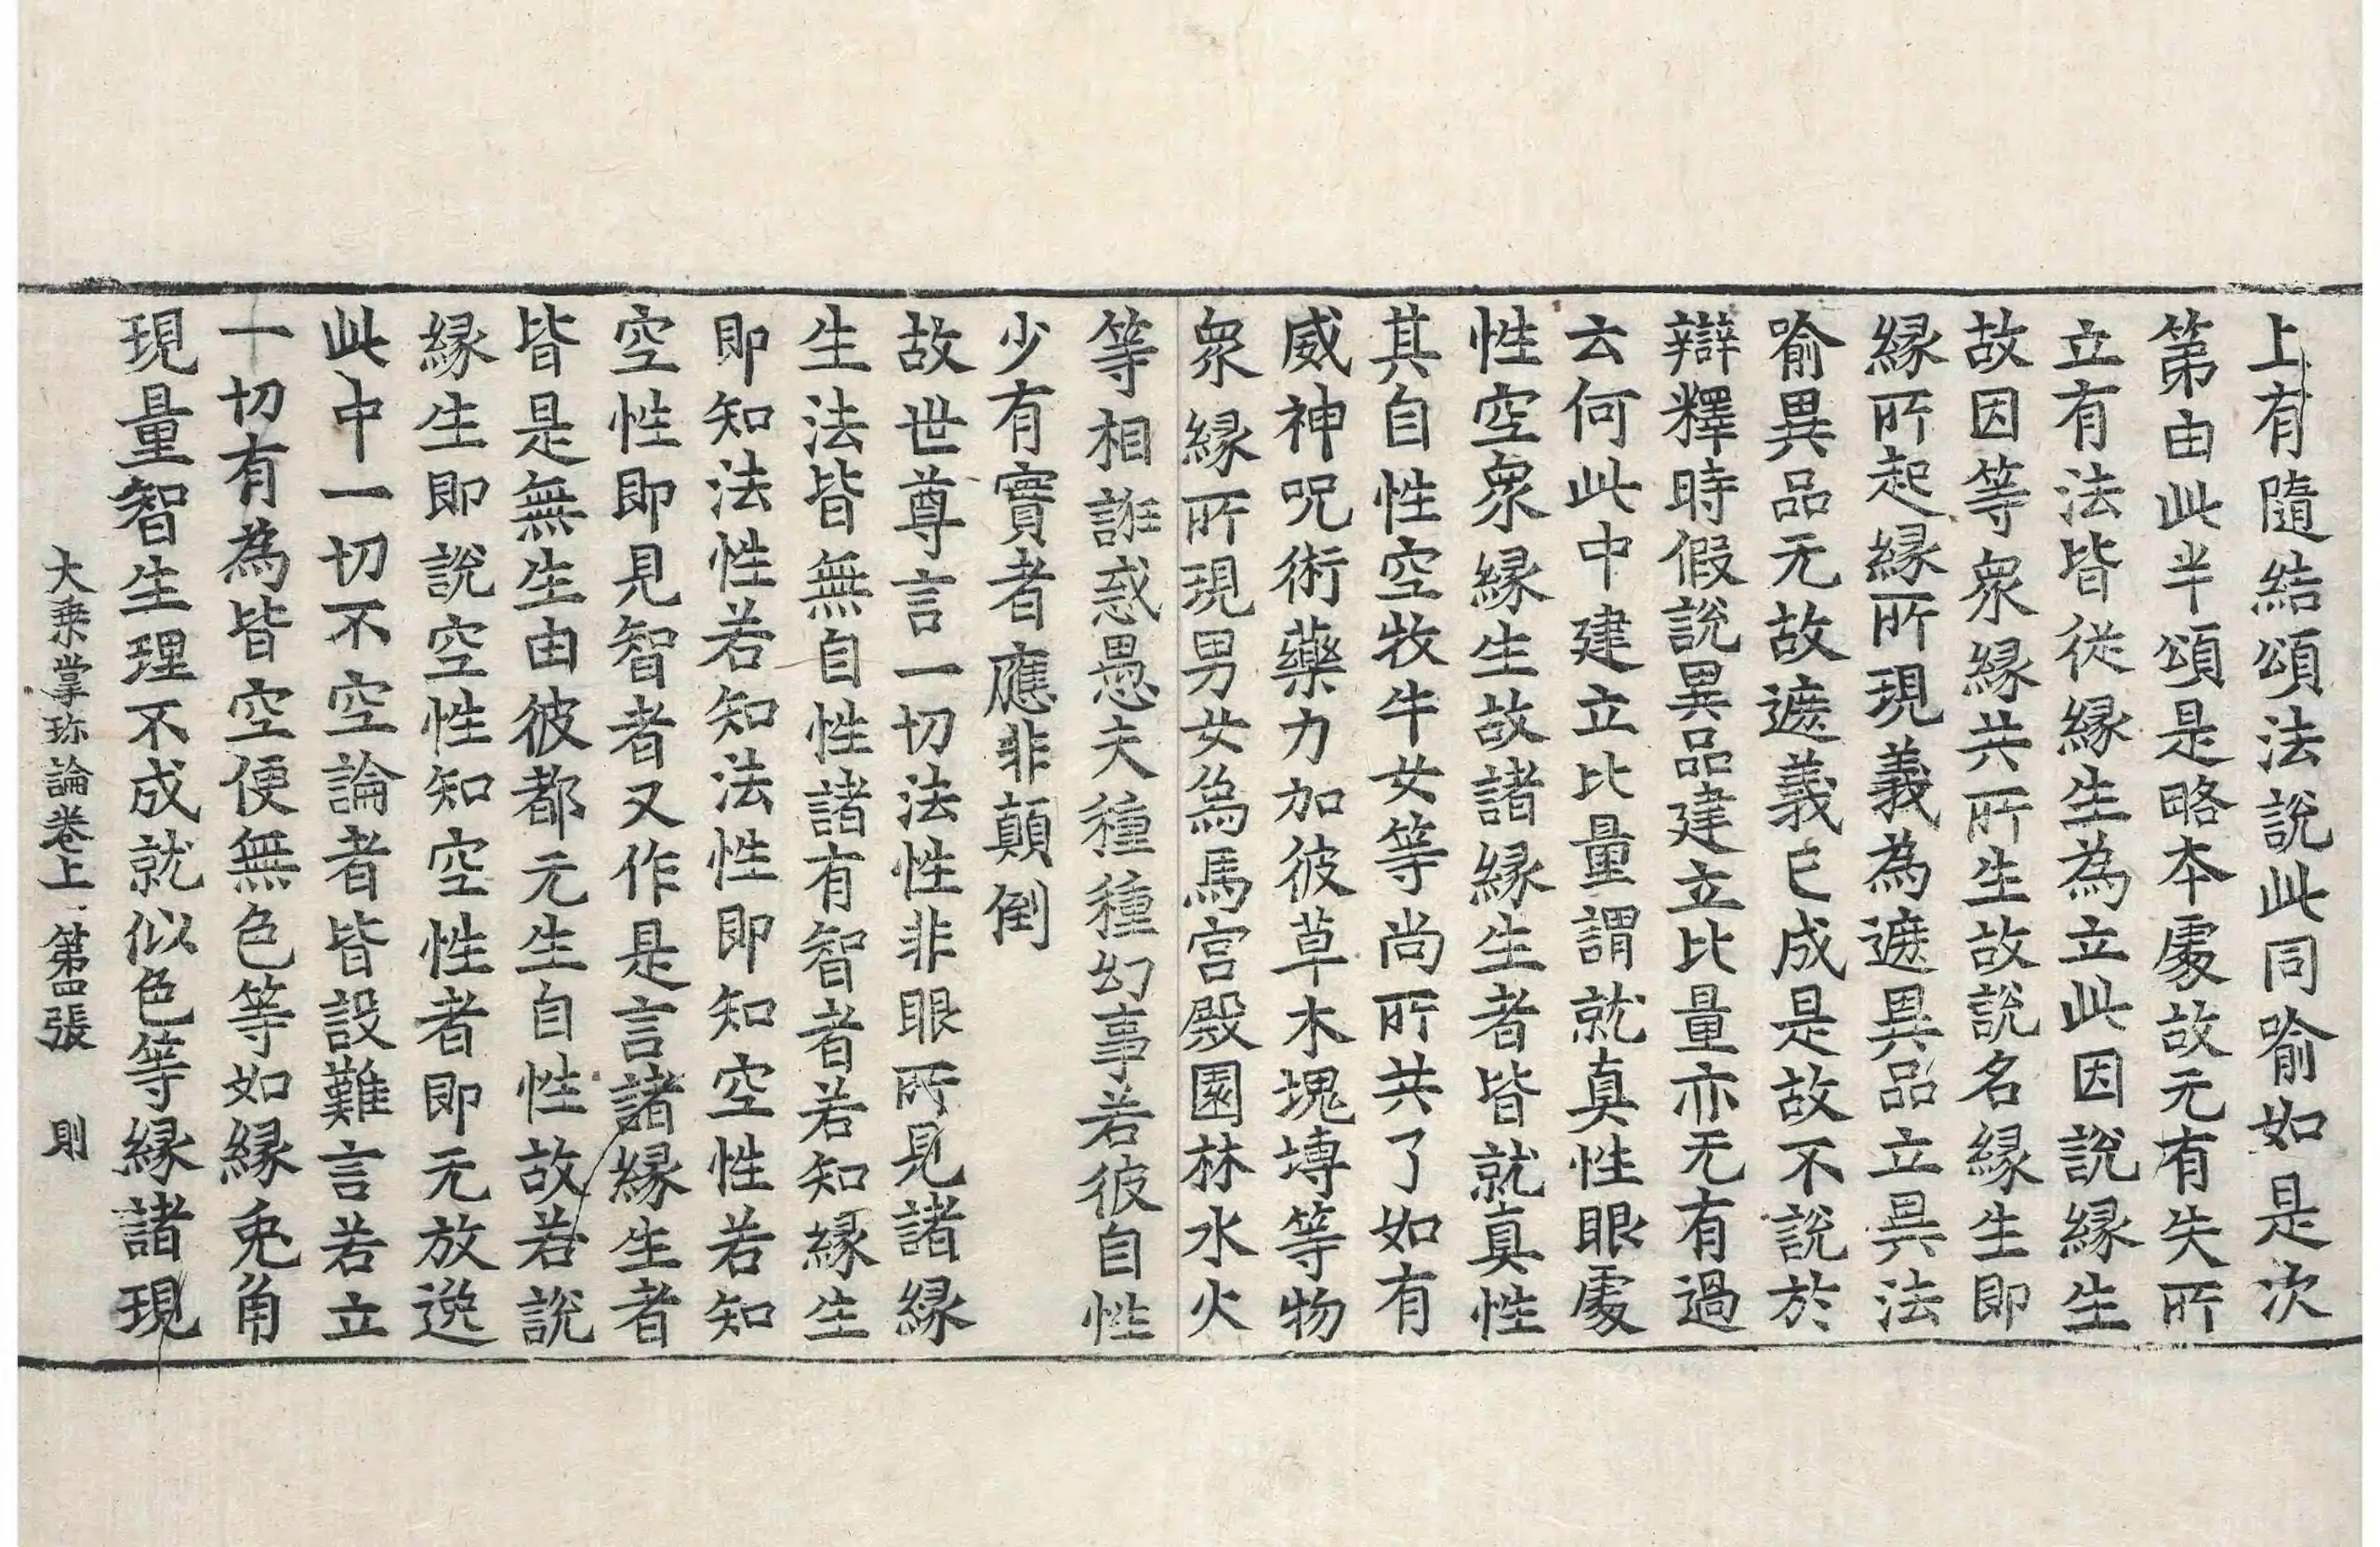 上有隨結頌法說此同喻如是次
第由此半頌是略本處故无有失所
立有法皆從緣生為立此因說緣生
故因等衆緣共所生故說名緣生即
緣所起緣所現義為遮異品立異法
喻異品无故遮義已成是故不說於
辯釋時假說異品建立比量亦无有過
云何此中建立比量謂就真性眼處
性空衆緣生故諸緣生者皆就真性
其自性空牧牛女等尚所共了如有
威神呪術藥力加彼草木塊塼等物
衆緣所現男女為馬宮殿園林水火
等相誑惑愚夫種種幻事若彼自性
少有實者應非顛倒
故世尊言一切法性非眼所見諸緣
生法皆無自性諸有智者若知緣生
即知法性若知法性即知空性若知
空性即見智者又作是言諸緣生者
皆是無生由彼都无生自性故若說
緣生即說空性知空性者即无放逸
此中一切不空論者皆設難言若立
一切有為皆空便無色等如緣兎角
現量智生理不成就似色等緣諸現
大乗掌珎論卷上 第四張 則